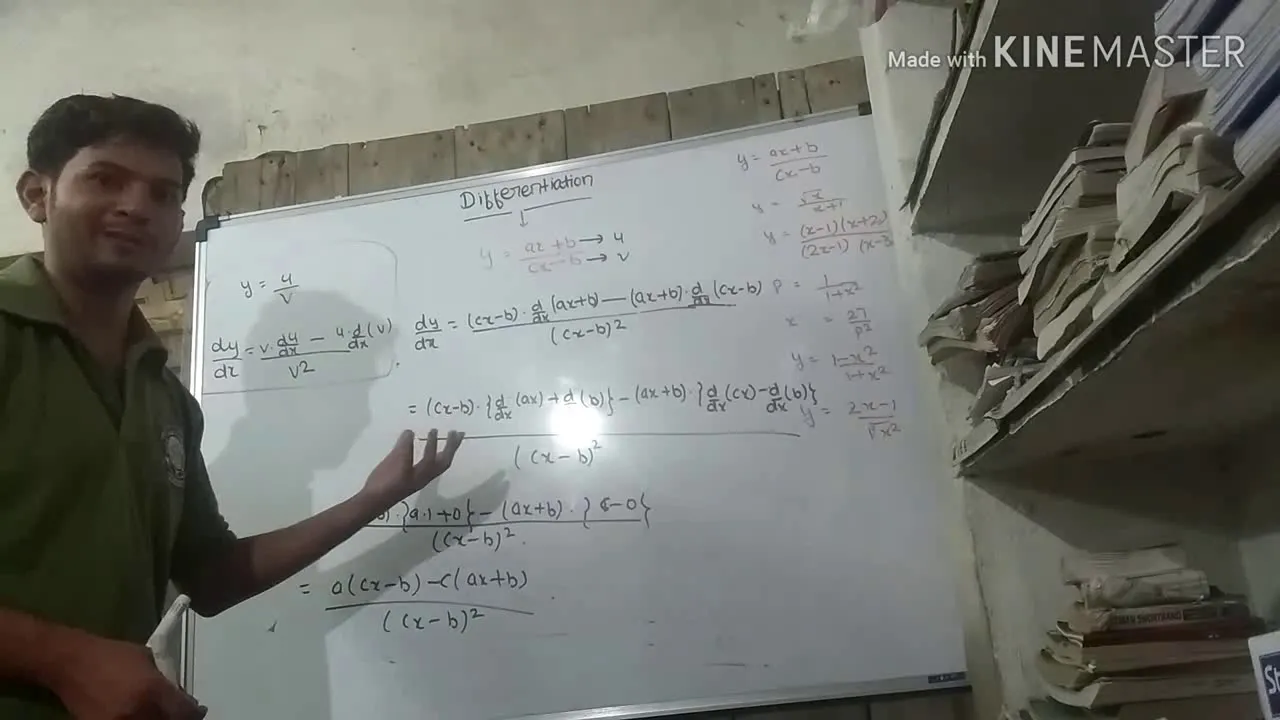 Made with KINEMASTER
Differentiation
y = ax+b → u
cx-b → v
y = u/v
dy/dx = v·du/dx - u·d/dx(v)
v²
dy/dx = (cx-b)·d/dx(ax+b) - (ax+b)·d/dx(cx-b)
(cx-b)²
= (cx-b)·{d/dx(ax)+d/(b)} - (ax+b)·{d/dx(cx)-d/dx(b)}
(cx-b)²
·{a·1+0} - (ax+b)·{c-0}
(cx-b)²
= a(cx-b)-c(ax+b)
(cx-b)²
y = ax+b
cx-b
y = √x
x+1
y = (x-1)(x+2)
(2x-1)(x-3
p = 1
1+x²
x = 27
p²
y = 1-x²
1+x²
y = 2x-1
√x²